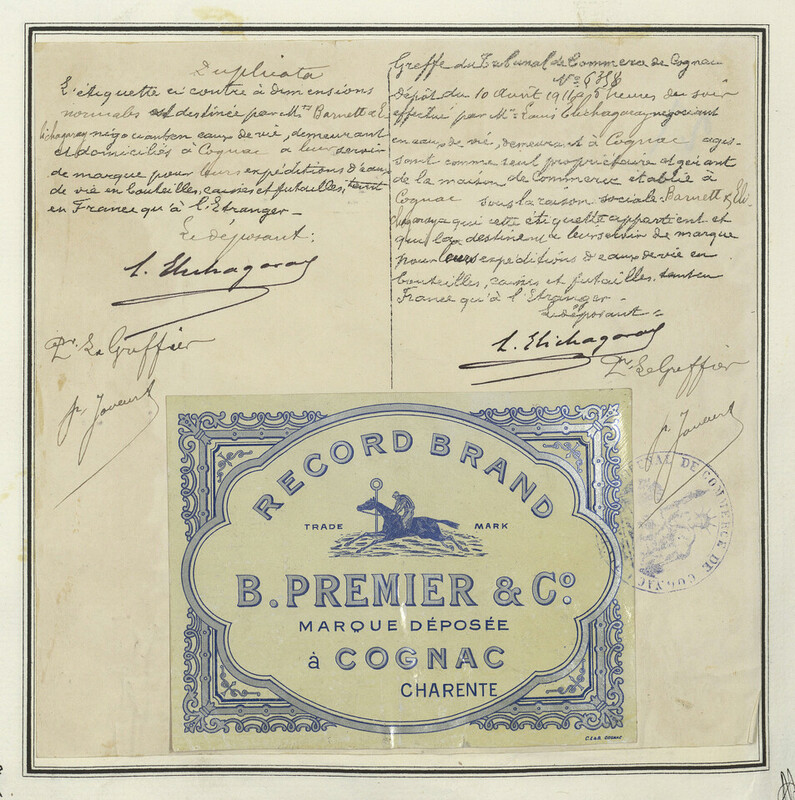 Duplicata
L'étiquette ci contre à dimensions
normales est destinée par Mrs Barnett & E
lichagaray négociants en eaux de vie, demeurant
et domiciliés à Cognac à leur servir
de marque pour leurs expéditions d'eaux
de vie en bouteilles, caisses et futailles, tant
en France qu'à l'Etranger _
Le déposant:
L. Elichagaray
Pr. Le Greffier
Greffe du Tribunal de Commerce de Cognac
No 6358
Dépôt du 10 Avril 1911 à 5 heures du soir
effectué par Mr Louis Elichagaray négociant
en eaux de vie, demeurant à Cognac agis-
sant comme seul propriétaire et gérant
de la maison de Commerce établie à
Cognac sous la raison sociale: Barnett & Eli-
chagaray a qui cette étiquette appartient et
qui la destinent à leur servir de marque
pour leurs expéditions d'eaux de vie en
bouteilles, caisses et futailles tant en
France qu'à l'Etranger _
Le déposant:
L. Elichagaray
Pr. Le Greffier
RECORD BRAND
TRADE MARK
B. PREMIER & Co.
MARQUE DÉPOSÉE
à COGNAC
CHARENTE
TRIBUNAL DE COMMERCE DE COGNAC